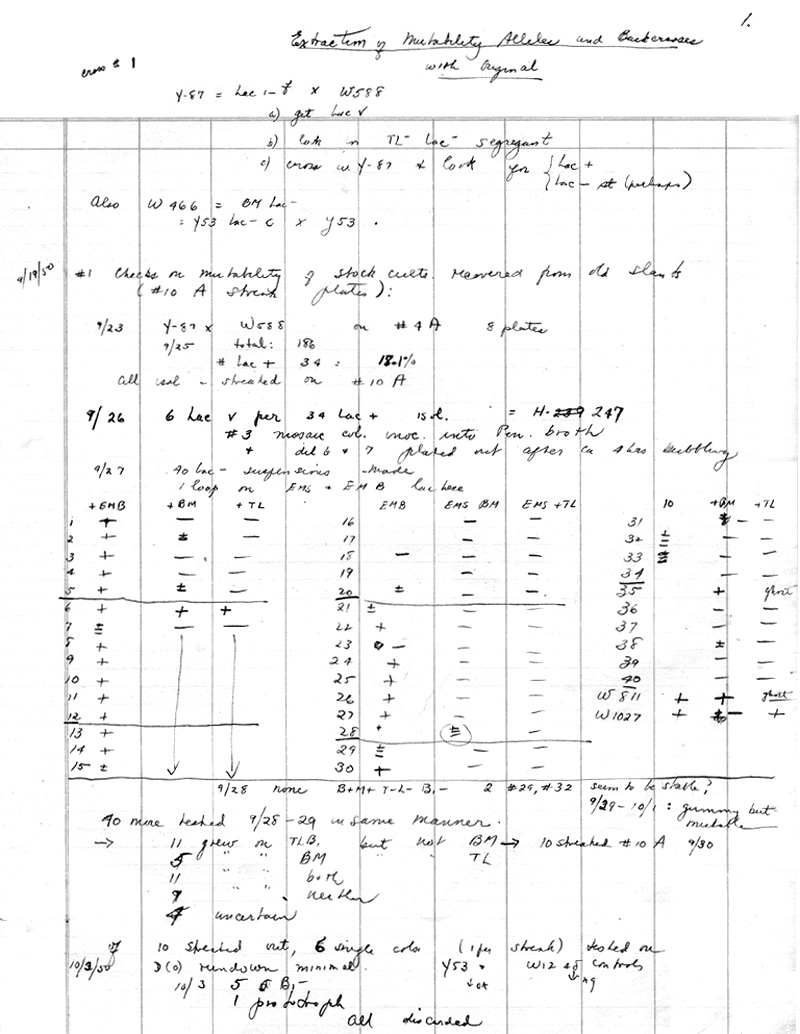 1.
Extraction of Mutability Alleles and Backcrosses
with Original
cross # 1
Y-87 = Lac 1- × W588
a) get Lac v
b) look in TL- Lac- segregant
c) cross w Y-87 & look for { Lac +
{ Lac - st (perhaps)
Also W 466 = BM Lac-
= Y53 Lac- c × Y53 .
9/19/50 #1 Checks on mutability of stock cults. recovered from old slants
(#10 A streak plates):
9/23 Y-87 × W588 on #4A 8 plates
9/25 total: 186
# Lac + 34 = 18.1%
All isol - streaked on #10 A
9/26 6 Lac v per 34 Lac + isol. = H- 247
#3 mosaic col. inoc. into Pen. broth
+ dil 6 & 7 plated out after ca 4 hrs bubbling
9/27 40 lac- suspensions made
1 loop on EMS + EMB lac here
+EMB +BM +TL EMB EMS BM EMS +TL 10 +BM +TL
1 + − − 16 − − 31 − −
2 + ± − 17 − − 32 ± − −
3 + − − 18 − − − 33 ± − −
4 + − − 19 − − 34 − −
5 + ± − 20 ± − − 35 + ghost
6 + + + 21 ± − − 36 − −
7 ± − − 22 + − − 37 − −
8 + 23 − − − 38 ± −
9 + 24 + − − 39 − −
10 + 25 + − − 40 − −
11 + 26 + − − W811 + + ghost
12 + 27 + − − W1027 + − +
13 + 28 ± −
14 + 29 ± − −
15 ± 30 + − −
9/28 none B+M+ T-L- B1- 2 #29, #32 seem to be stable?
9/29-10/1: gummy but
mutable
40 more tested 9/28-29 in same manner.
→ 11 grew on TLB1 but not BM → 10 streaked #10 A 9/30
5 " " BM " " TL
11 " " both
9 " " . neither
4 uncertain
of 10 streaked out, 6 single cols (1 per streak) tested on
10/3/50 D(0) rundown minimal. Y53 W12 controls
↓ok ↓ng
10/3 5 B1-
1 prototroph
all discarded